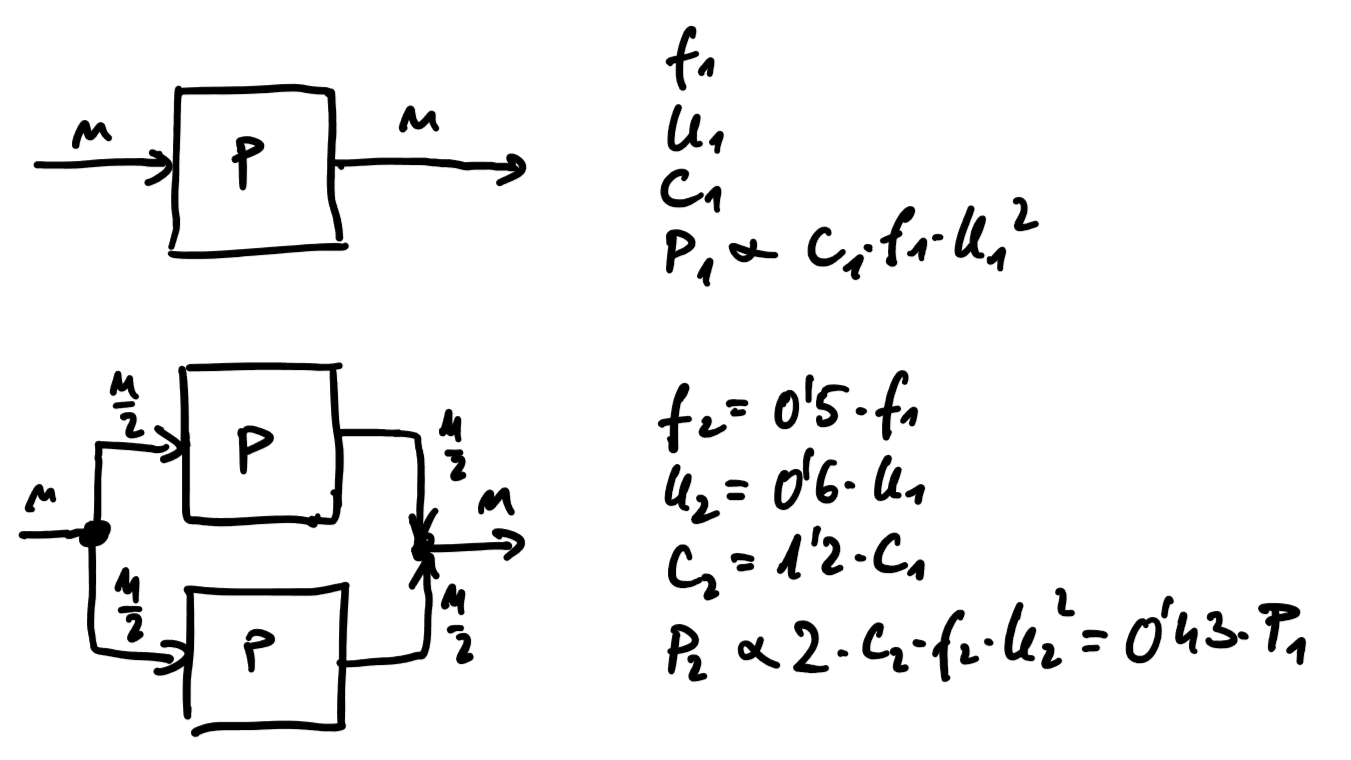 M
P
M
f₁
U₁
C₁
P₁ ∝ C₁·f₁·U₁²
M/2
P
M/2
M
M
M/2
P
M/2
f₂ = 0'5·f₁
U₂ = 0'6·U₁
C₂ = 1'2·C₁
P₂ ∝ 2·C₂·f₂·U₂² = 0'43·P₁